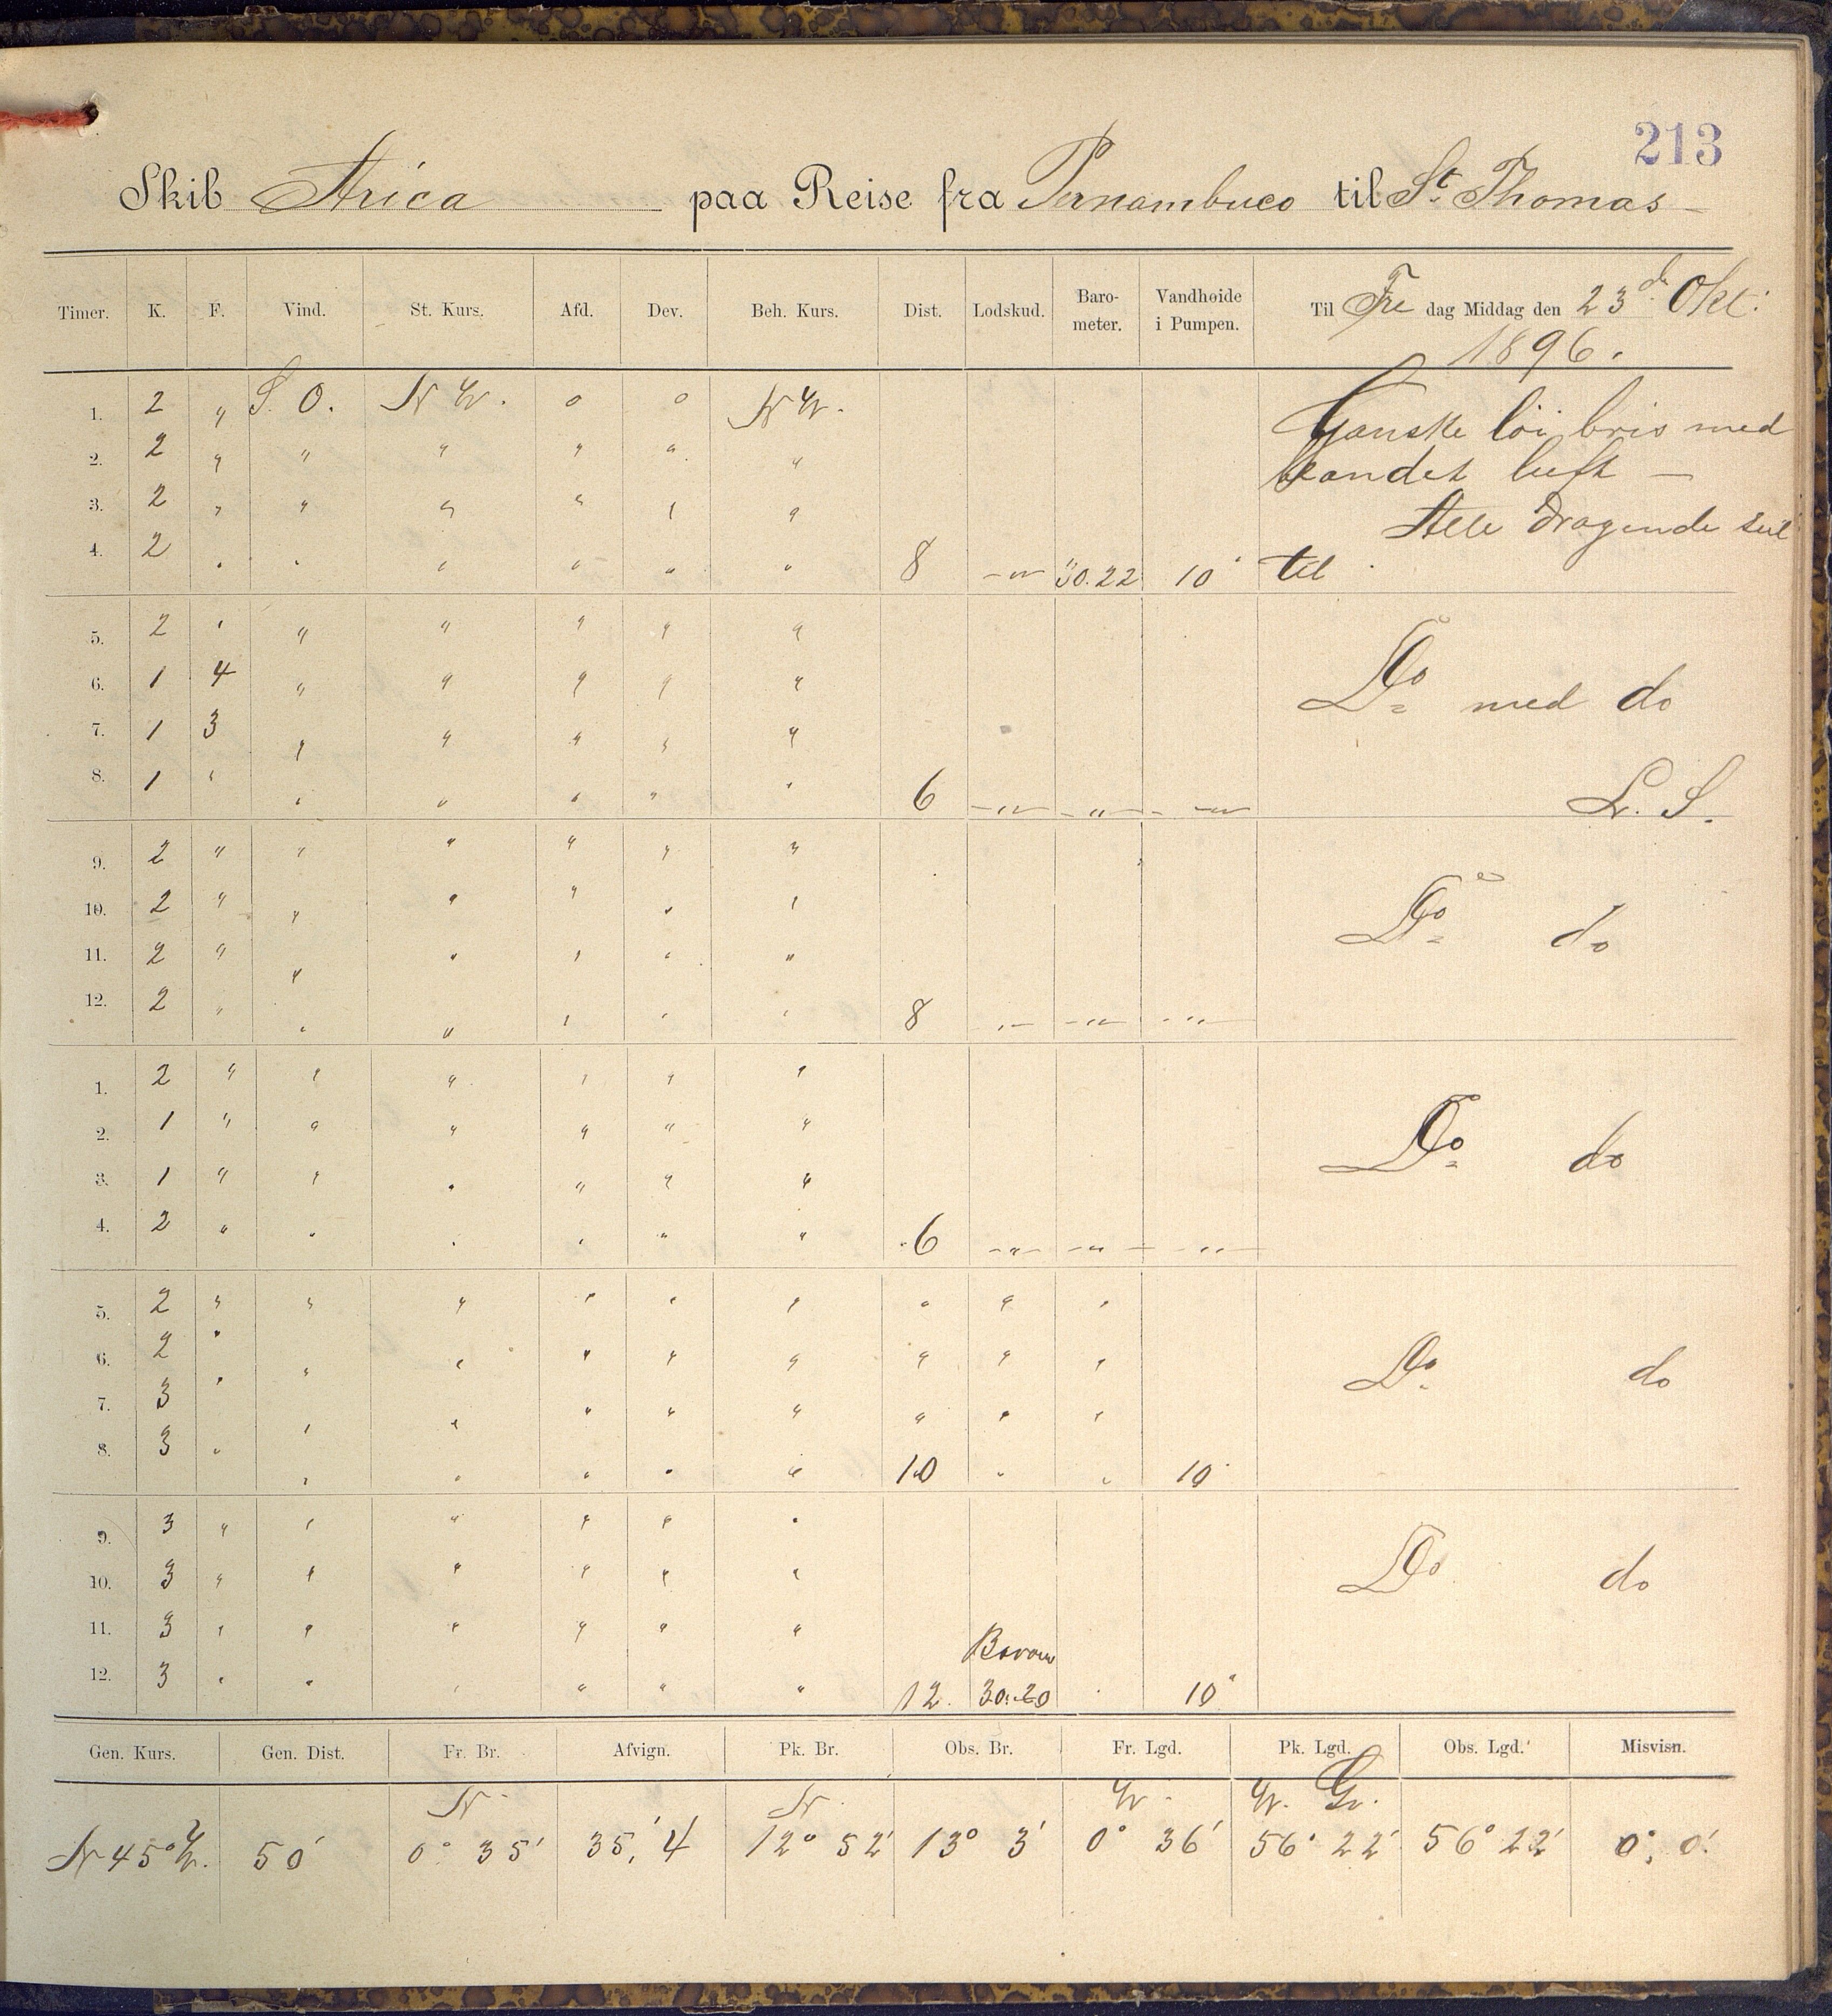 213
Skib Arica paa Reise fra Pernambuco til St. Thomas
Timer. K. F. Vind. St. Kurs. Afd. Dev. Beh. Kurs. Dist. Lodskud. Baro-meter. Vandhøide i Pumpen. Til Fre dag Middag den 23de Okt:
1896.
1. 2 " S. O. N W. 0 0 N W. Ganske løi bris med
2. 2 " " " " " " blandet luft —
3. 2 " " " " " " Alle dragende seil
4. 2 " " " " " " 8 -"- 30.22 10" til
5. 2 " " " " " "
6. 1 4 " " " " " Do med do
7. 1 3 " " " " "
8. 1 " " " " " " 6 -"- -"- -"- L. S.
9. 2 " " " " " "
10. 2 " " " " " " Do do
11. 2 " " " " " "
12. 2 " " " " " " 8 -"- -"- -"-
1. 2 " " " " " "
2. 1 " " " " " " Do do
3. 1 " " " " " "
4. 2 " " " " " " 6 -"- -"- -"-
5. 2 " " " " " " " " "
6. 2 " " " " " " " " " Do do
7. 3 " " " " " " " " "
8. 3 " " " " " " 10 " " 10"
9. 3 " " " " " "
10. 3 " " " " " " Do do
11. 3 " " " " " " Barom
12. 3 " " " " " " 12. 30.20 " 10"
Gen. Kurs. Gen. Dist. Fr. Br. Afvign. Pk. Br. Obs. Br. Fr. Lgd. Pk. Lgd. Obs. Lgd. Misvisn.
N. N. W. W. Gr.
N 45° W. 50' 0° 35' 35,'4 12° 52' 13° 3' 0° 36' 56° 22' 56° 22' 0° 0'